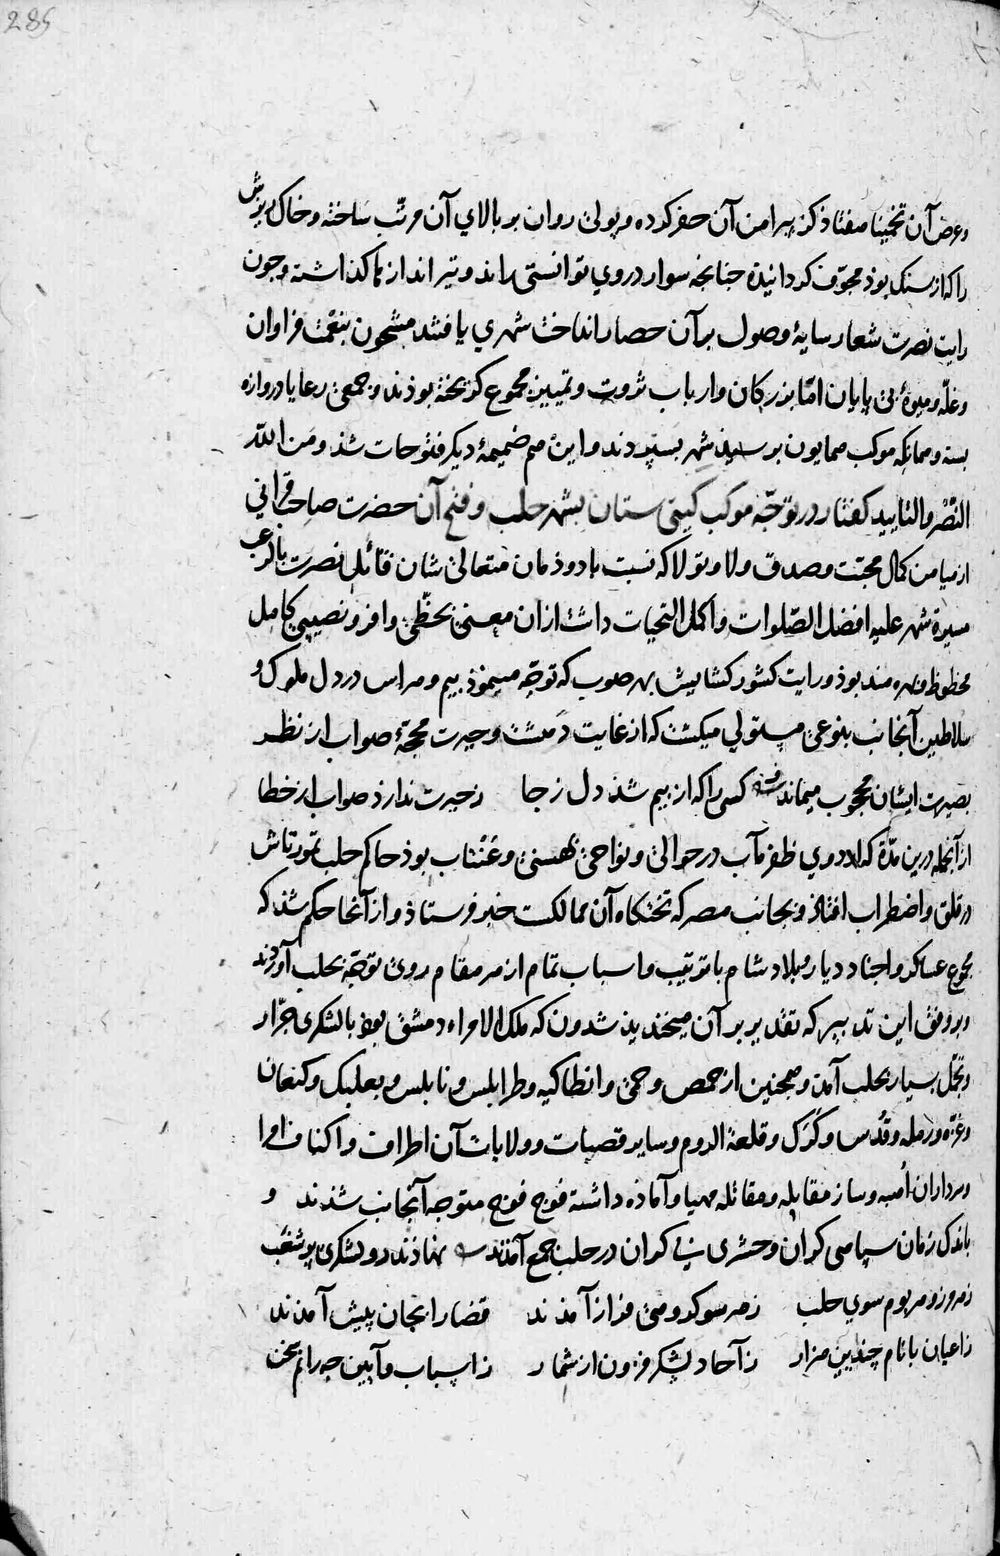 285
وعرض آن تخمینا هفتاذ کز پیرامن آن حفر کرده و پولی روان بر بالای آن مرتب ساخته و خاک ریزش
را که از سنک بوذ مجوّف کردانیده جنانجه سوار در وی توانستی راند و تیر انداز نما کذاشته وجون
رایت نصرت شعار سایهٔ وصول بر آن حصار انداخت شهری یافتند مشحون بنعمت فراوان
وغلّه و میوهٔ بی پایان امّا بزرکان وارباب ثروت و تمییز مجموع کریخته بوذند وجمعی رعایا دروازه
بسته وهمانکه موکب همایون برسید شهر بسپردند واین هم ضمیمهٔ دیکر فتوحات شذ ومن الله
النّصر والتایید کفتار در توجّه موکب کیتی ستان بشهر حلب و فتح آن حضرت صاحب قرانی
از میامن کمال محبّت وصدق ولا و تولا که نسبت با دوذمان متعالی شان قائل نصرت بالرعب
مسیرة شهر علیه افضل الصّلوات واکمل التحیات داشت ازان معنی بحظّی وافر ونصیبی کامل
محظوظ و بهره مند بوذ ورایت کشور کشایش بهر صوب که توجّه مینموذ بیم وهراس در دل ملوک و
سلاطین آنجانب بنوعی مستولی میکشت که از غایت دهشت وحیرت محجّهٔ صواب از نظر
بصیرت ایشان محجوب میماند کسی را که از بیم شذ دل ز جا ز حیرت نداند صواب از خطا
از آنجمله درین مدّة که اردوی ظفر مآب در حوالی ونواحی بهسنی وعنتاب بوذ حاکم حلب تمورتاش
در قلق واضطراب افتاذ وبجانب مصر که تختکاه آن ممالکت خبر فرستاذ واز آنجا حکم شذ که
مجموع عساکر واجناد دیار وبلاد شام با ترتیب واسباب تمام از هر مقام روی توجّه بحلب آوردند
وبر وفق این تدبیر که تقدیر بر آن میخندیذ شدون که ملک الامراء دمشق بوذ با لشکری جرّار
وتجمّل بسیار بحلب آمد وهمجنین از حمص وحمی وانطاکیه وطرابلس ونابلس و بعلبک وکنعان
وغزّه ورمله وقُدس وکَرَک وقلعة الروم وسایر قصبات وولایات آن اطراف واکناف امرا
وسرداران اُهبه وساز مقابله ومقاتله مهیا وآماذه داشته فوج فوج متوجه آنجانب شذند و
باندک زمان سپاهی کران وحشری بی کران در حلب جمع آمذند نهاذند رو لشکری پر شغب
ز هر روز هر بوم سوی حلب ز هر سو کروهی فراز آمذند قضا را بجان پیش آمذند
ز اعیان با نام چندین هزار ز آحاد لشکر فزون از شمار ز اسباب وآیین چه رانم سخن